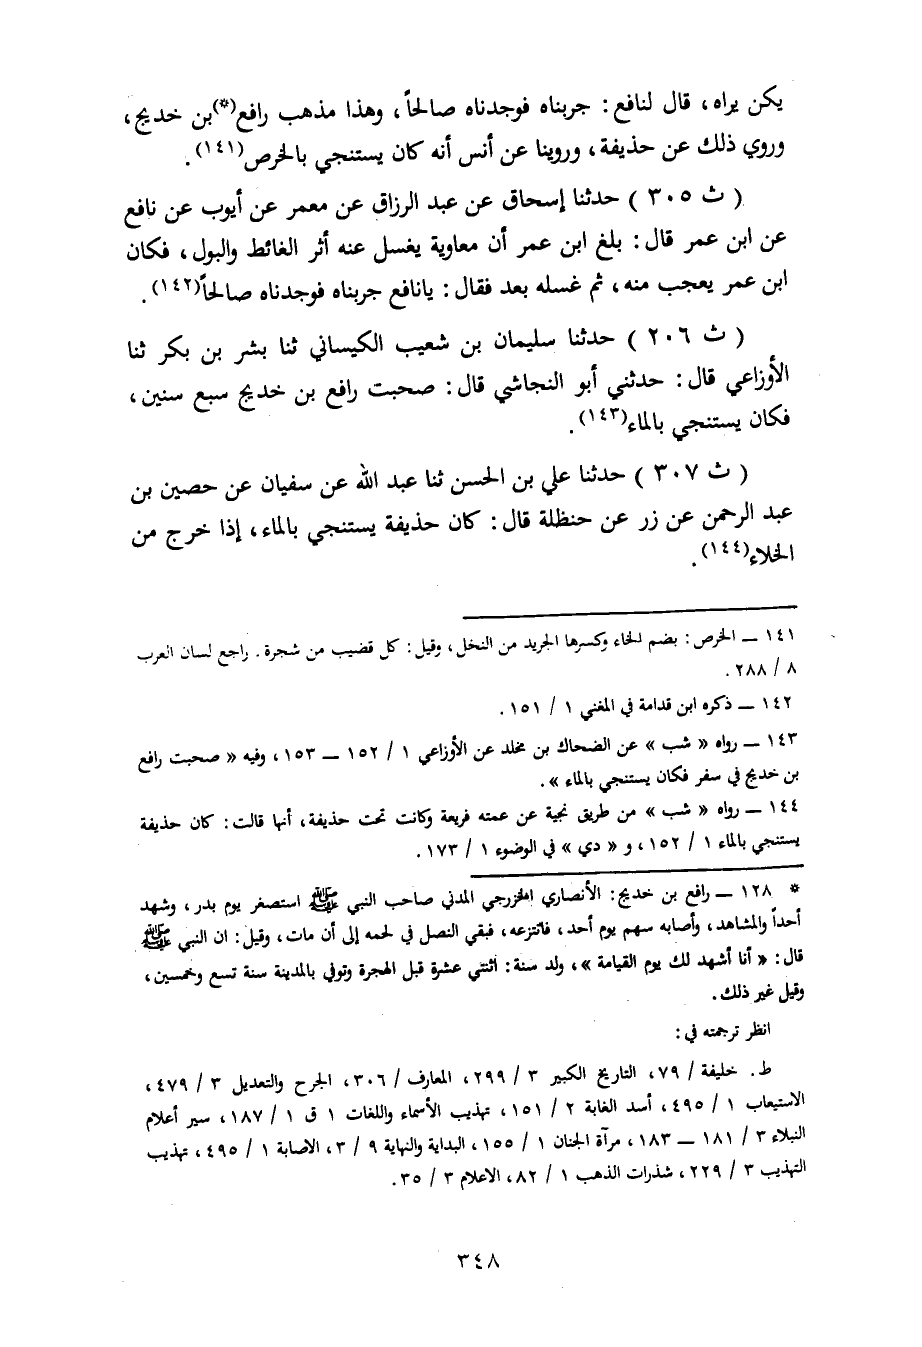 يكن يراه ، قال لنافع : جربناه فوجدناه صالحاً ، وهذا مذهب رافع(*)بن خديج ،
وروي ذلك عن حذيفة ، وروينا عن أنس أنه كان يستنجي بالخرص(١٤١) .
( ث ٣٠٥ ) حدثنا إسحاق عن عبد الرزاق عن معمر عن أيوب عن نافع
عن ابن عمر قال : بلغ ابن عمر أن معاوية يغسل عنه أثر الغائط والبول ، فكان
ابن عمر يعجب منه ، ثم غسله بعد فقال : يانافع جربناه فوجدناه صالحاً(١٤٢) .
( ث ٢٠٦ ) حدثنا سليمان بن شعيب الكيساني ثنا بشر بن بكر ثنا
الأوزاعي قال : حدثني أبو النجاشي قال : صحبت رافع بن خديج سبع سنين ،
فكان يستنجي بالماء(١٤٣) .
( ث ٣٠٧ ) حدثنا علي بن الحسن ثنا عبد الله عن سفيان عن حصين بن
عبد الرحمن عن زر عن حنظلة قال : كان حذيفة يستنجي بالماء ، إذا خرج من
الخلاء(١٤٤) .
١٤١ ــ الخرص : بضم الخاء وكسرها الجريد من النخل ، وقيل : كل قضيب من شجرة . راجع لسان العرب
٨ / ٢٨٨ .
١٤٢ ــ ذكره ابن قدامة في المغني ١ / ١٥١ .
١٤٣ ــ رواه « شب » عن الضحاك بن مخلد عن الأوزاعي ١ / ١٥٢ ــ ١٥٣ ، وفيه « صحبت رافع
بن خديج في سفر فكان يستنجي بالماء » .
١٤٤ ــ رواه « شب » من طريق نجية عن عمته فريعة وكانت تحت حذيفة ، أنها قالت : كان حذيفة
يستنجي بالماء ١ / ١٥٢ ، و « دي » في الوضوء ١ / ١٧٣ .
* ١٢٨ ــ رافع بن خديج : الأنصاري الخزرجي المدني صاحب النبي ﷺ استصغر يوم بدر ، وشهد
أحداً والمشاهد ، وأصابه سهم يوم أحد ، فانتزعه ، فبقي النصل في لحمه إلى أن مات ، وقيل : ان النبي ﷺ
قال : « أنا أشهد لك يوم القيامة » ، ولد سنة : اثنتي عشرة قبل الهجرة وتوفي بالمدينة سنة تسع وخمسين ،
وقيل غير ذلك .
انظر ترجمته في :
ط . خليفة / ٧٩ ، التاريخ الكبير ٣ / ٢٩٩ ، المعارف / ٣٠٦ ، الجرح والتعديل ٣ / ٤٧٩ ،
الاستيعاب ١ / ٤٩٥ ، أسد الغابة ٢ / ١٥١ ، تهذيب الأسماء واللغات ١ ق ١ / ١٨٧ ، سير أعلام
النبلاء ٣ / ١٨١ ــ ١٨٣ ، مرآة الجنان ١ / ١٥٥ ، البداية والنهاية ٩ / ٣ ، الاصابة ١ / ٤٩٥ ، تهذيب
التهذيب ٣ / ٢٢٩ ، شذرات الذهب ١ / ٨٢ ، الاعلام ٣ / ٣٥ .
٣٤٨